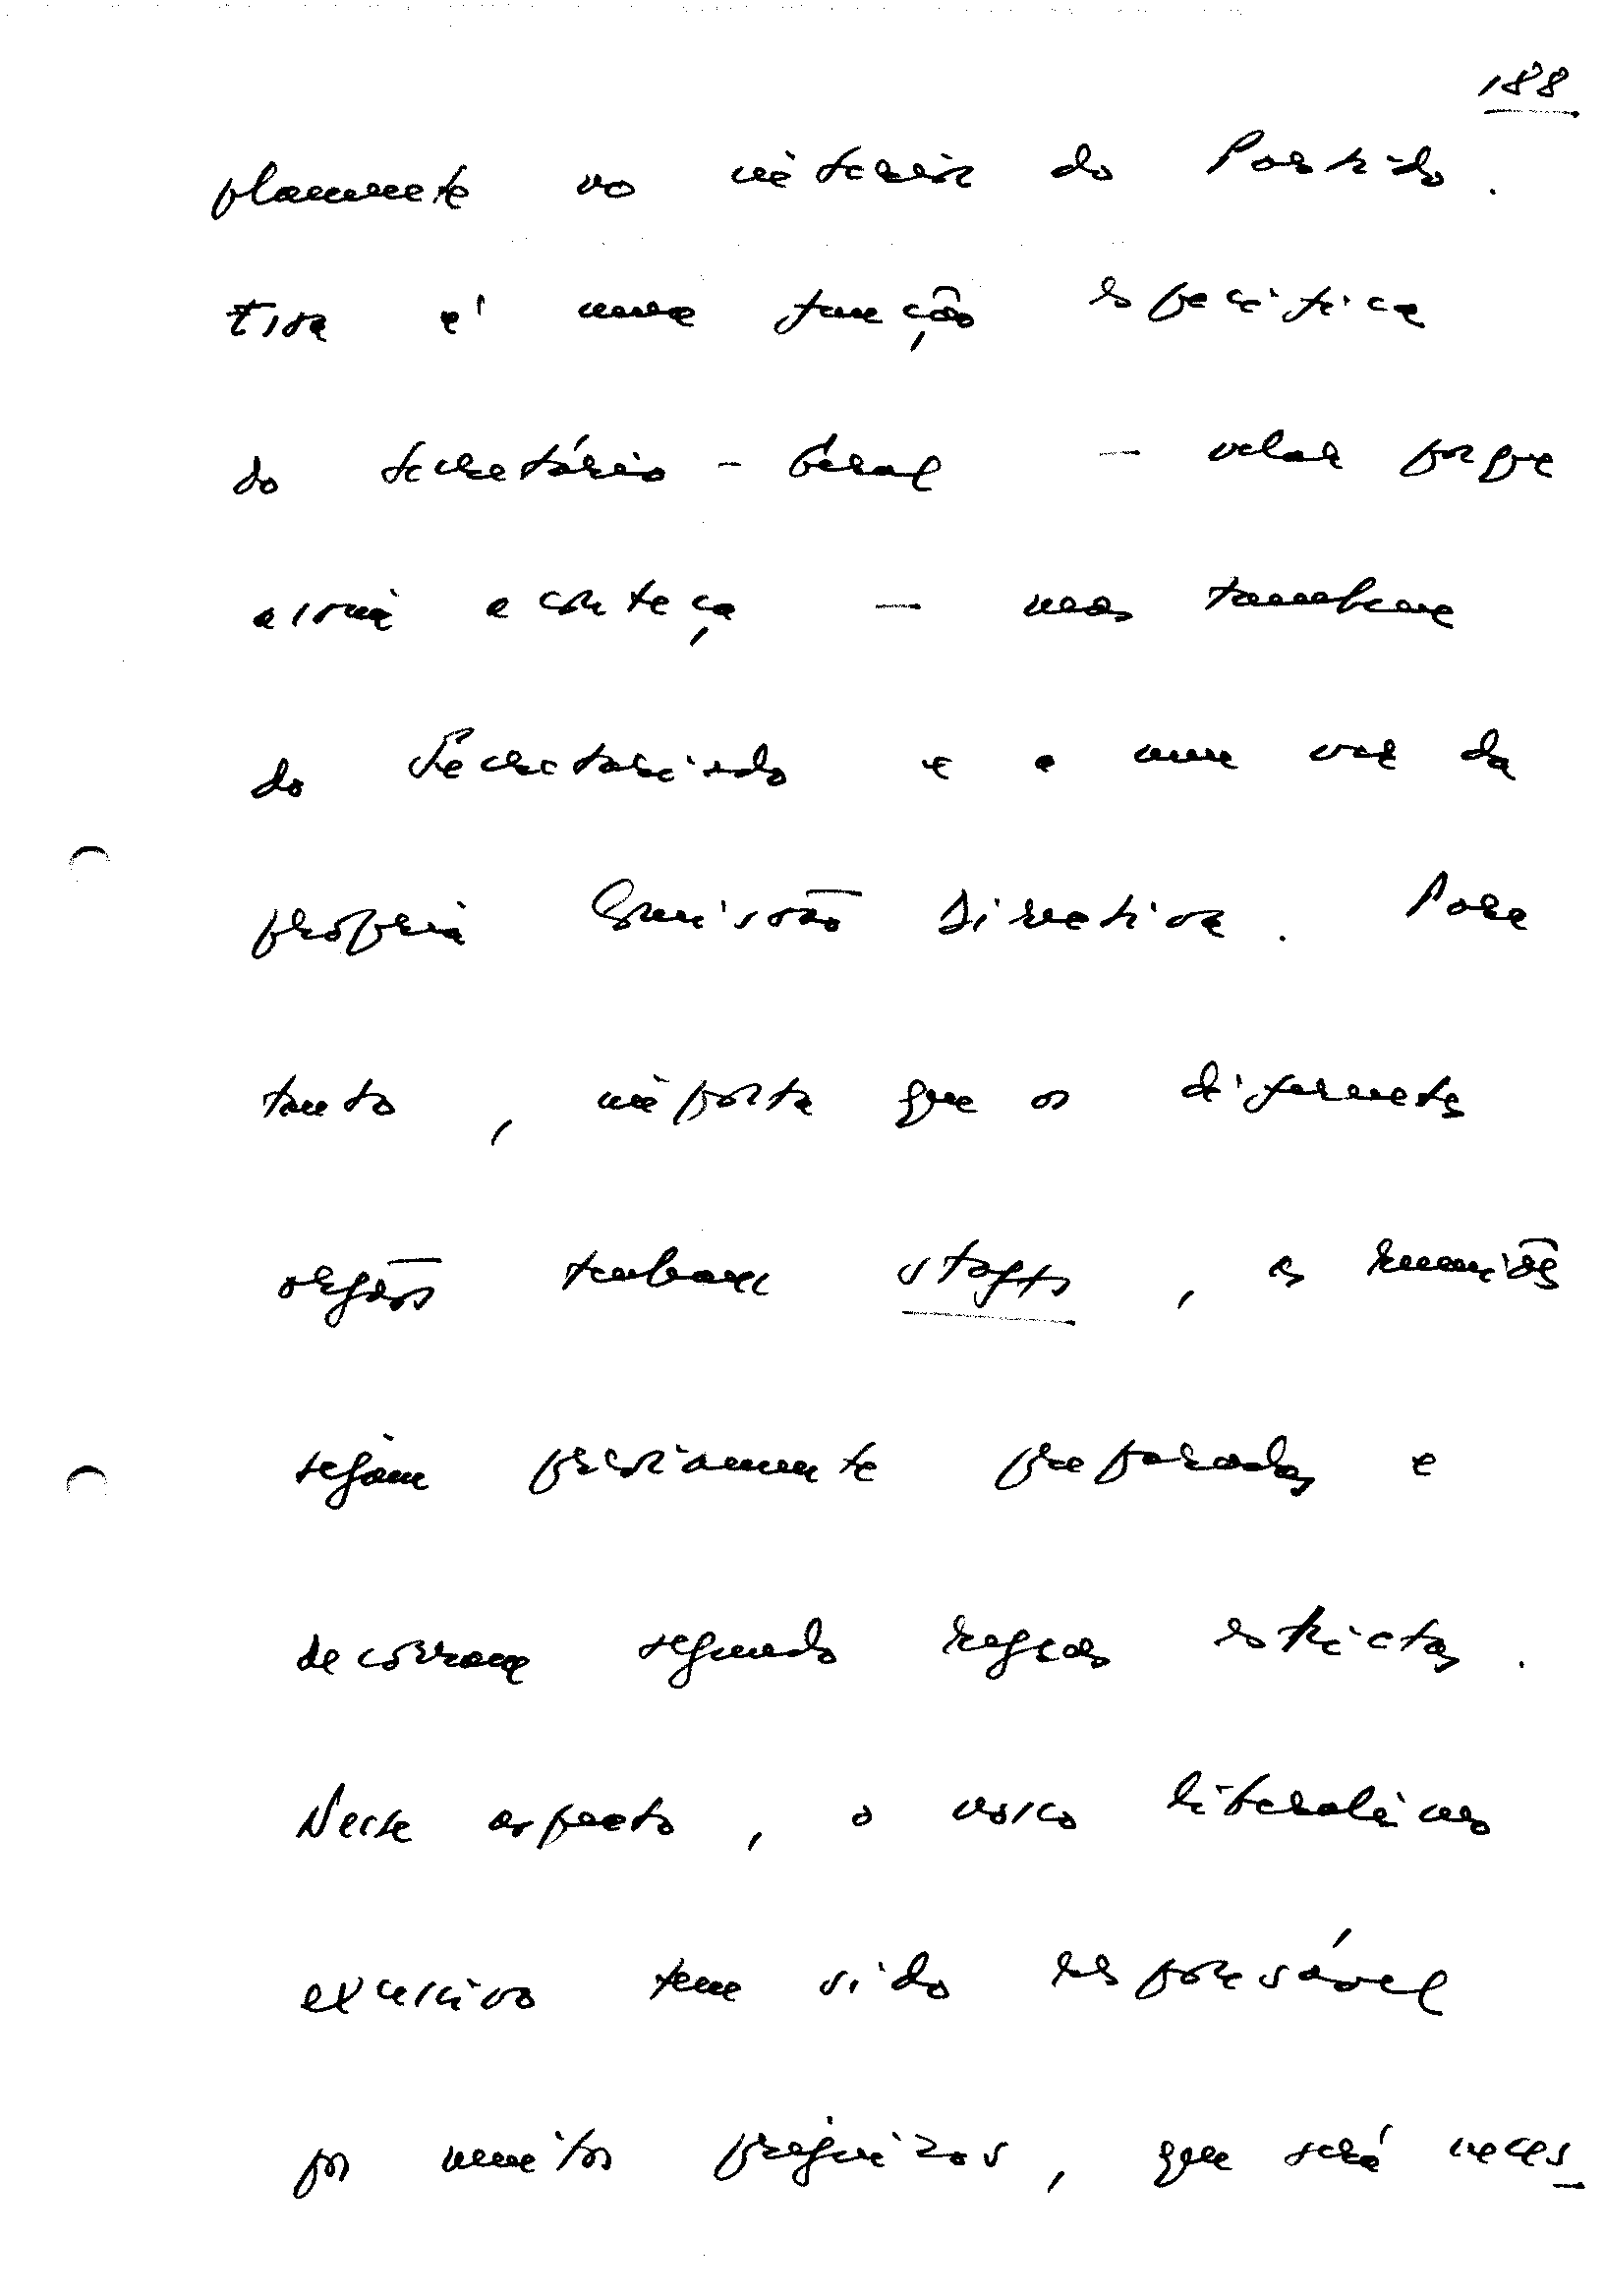 188
plamente no interior do Partido.
Essa é uma função específica
do Secretário-Geral – velar porque
assim aconteça – mas tambem
do Secretariado e a seu vez da
própria Comissão Directiva. Por
tanto, importa que os diferentes
orgãos tenham staffs, as reuniões
sejam préviamente preparadas e
decorram segundo regras estrictas.
Neste aspecto, o nosso liberalismo
excessivo tem sido responsável
por muitos prejuizos, que será neces_